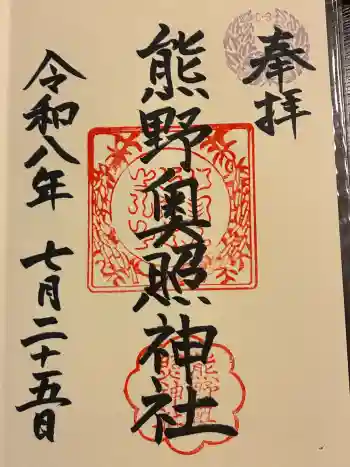 奉拝
熊野奥照神社
令和八年 七月二十五日